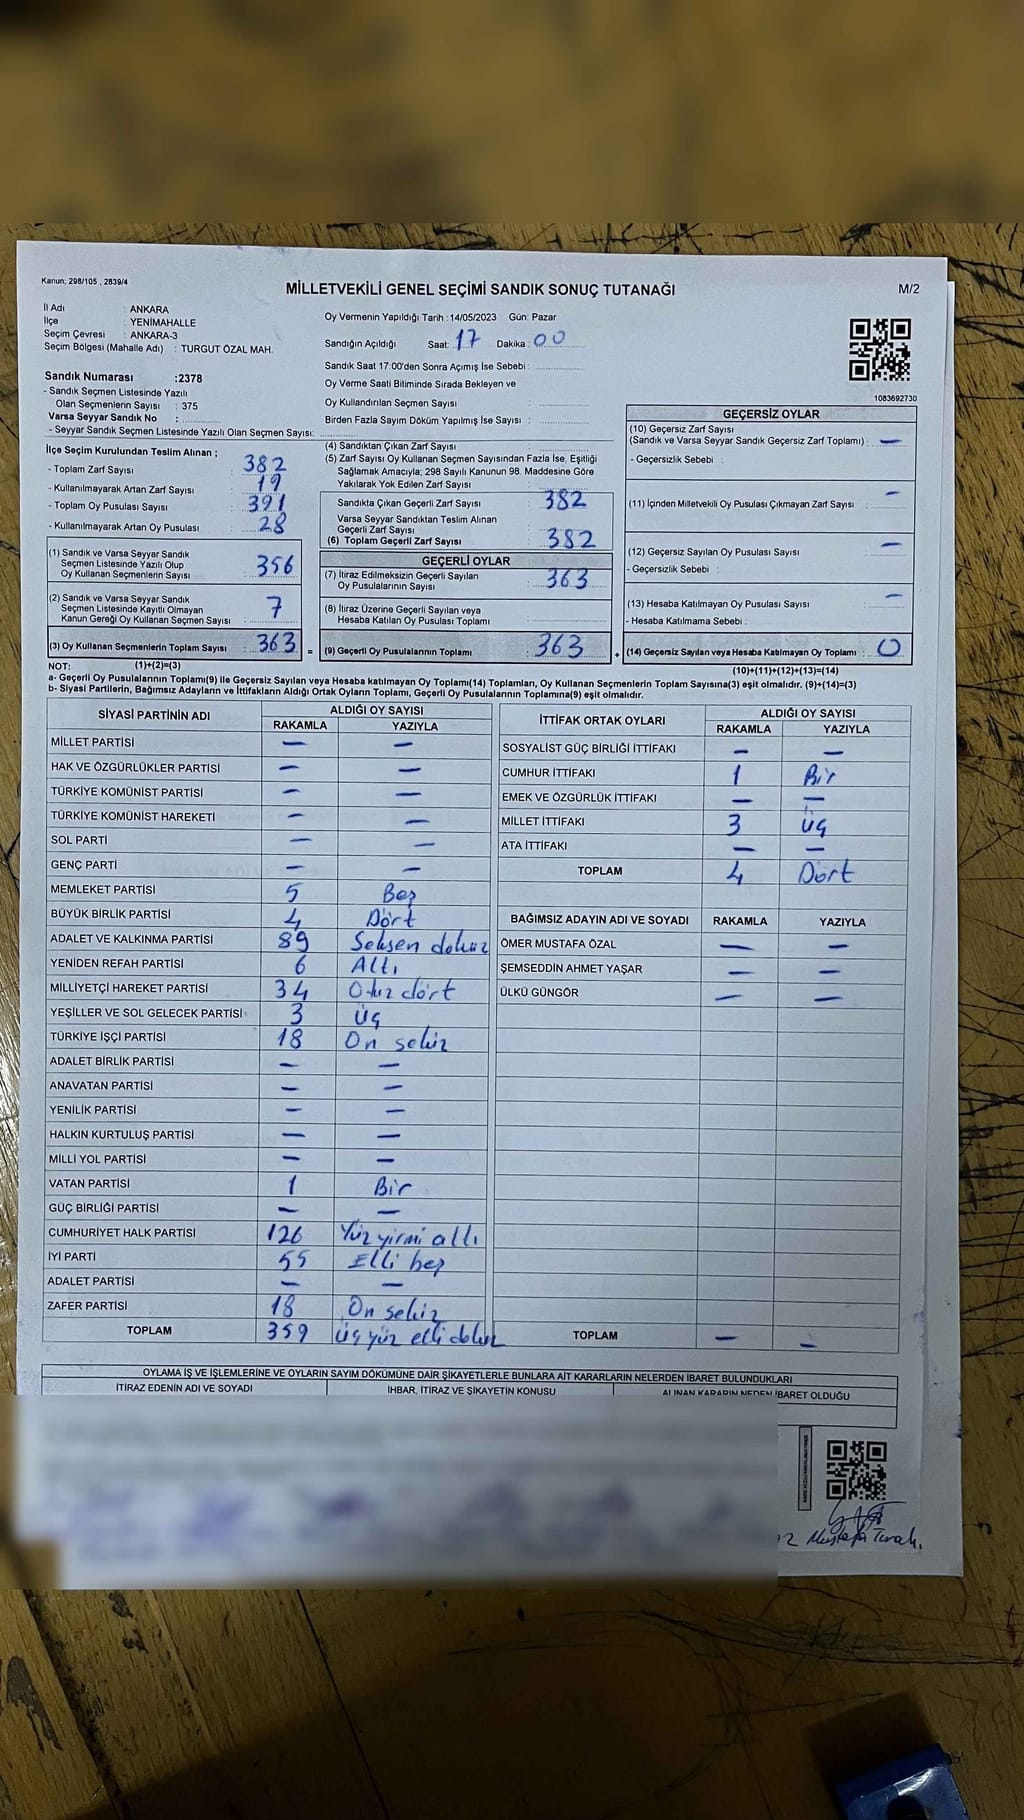 Kanun: 298/105 , 2839/4
MİLLETVEKİLİ GENEL SEÇİMİ SANDIK SONUÇ TUTANAĞI
M/2
İl Adı : ANKARA
İlçe : YENİMAHALLE
Seçim Çevresi : ANKARA-3
Seçim Bölgesi (Mahalle Adı) : TURGUT ÖZAL MAH.
Sandık Numarası :2378
- Sandık Seçmen Listesinde Yazılı
Olan Seçmenlerin Sayısı : 375
Varsa Seyyar Sandık No :
- Seyyar Sandık Seçmen Listesinde Yazılı Olan Seçmen Sayısı:
Oy Vermenin Yapıldığı Tarih :14/05/2023 Gün: Pazar
Sandığın Açıldığı Saat: 17 Dakika : 00
Sandık Saat 17:00'den Sonra Açımış İse Sebebi :
Oy Verme Saati Bitiminde Sırada Bekleyen ve
Oy Kullandırılan Seçmen Sayısı :
Birden Fazla Sayım Döküm Yapılmış İse Sayısı :
1083692730
İlçe Seçim Kurulundan Teslim Alınan ;
- Toplam Zarf Sayısı : 382
- Kullanılmayarak Artan Zarf Sayısı : 19
- Toplam Oy Pusulası Sayısı : 391
- Kullanılmayarak Artan Oy Pusulası : 28
(1) Sandık ve Varsa Seyyar Sandık
Seçmen Listesinde Yazılı Olup
Oy Kullanan Seçmenlerin Sayısı : 356
(2) Sandık ve Varsa Seyyar Sandık
Seçmen Listesinde Kayıtlı Olmayan
Kanun Gereği Oy Kullanan Seçmen Sayısı : 7
(3) Oy Kullanan Seçmenlerin Toplam Sayısı : 363 =
(4) Sandıktan Çıkan Zarf Sayısı
(5) Zarf Sayısı Oy Kullanan Seçmen Sayısından Fazla İse, Eşitliği
Sağlamak Amacıyla; 298 Sayılı Kanunun 98. Maddesine Göre
Yakılarak Yok Edilen Zarf Sayısı :
Sandıkta Çıkan Geçerli Zarf Sayısı : 382
Varsa Seyyar Sandıktan Teslim Alınan
Geçerli Zarf Sayısı
(6) Toplam Geçerli Zarf Sayısı : 382
GEÇERLİ OYLAR
(7) İtiraz Edilmeksizin Geçerli Sayılan
Oy Pusulalarının Sayısı : 363
(8) İtiraz Üzerine Geçerli Sayılan veya
Hesaba Katılan Oy Pusulası Toplamı :
(9) Geçerli Oy Pusulalarının Toplamı : 363 +
GEÇERSİZ OYLAR
(10) Geçersiz Zarf Sayısı
(Sandık ve Varsa Seyyar Sandık Geçersiz Zarf Toplamı) : —
- Geçersizlik Sebebi :
(11) İçinden Milletvekili Oy Pusulası Çıkmayan Zarf Sayısı : —
(12) Geçersiz Sayılan Oy Pusulası Sayısı : —
- Geçersizlik Sebebi :
(13) Hesaba Katılmayan Oy Pusulası Sayısı : —
- Hesaba Katılmama Sebebi :
(14) Geçersiz Sayılan veya Hesaba Katılmayan Oy Toplamı : 0
NOT: (1)+(2)=(3)
(10)+(11)+(12)+(13)=(14)
a- Geçerli Oy Pusulalarının Toplamı(9) ile Geçersiz Sayılan veya Hesaba katılmayan Oy Toplamı(14) Toplamları, Oy Kullanan Seçmenlerin Toplam Sayısına(3) eşit olmalıdır. (9)+(14)=(3)
b- Siyasi Partilerin, Bağımsız Adayların ve İttifakların Aldığı Ortak Oyların Toplamı, Geçerli Oy Pusulalarının Toplamına(9) eşit olmalıdır.
SİYASİ PARTİNİN ADI ALDIĞI OY SAYISI
RAKAMLA YAZIYLA
MİLLET PARTİSİ — —
HAK VE ÖZGÜRLÜKLER PARTİSİ — —
TÜRKİYE KOMÜNİST PARTİSİ — —
TÜRKİYE KOMÜNİST HAREKETİ — —
SOL PARTİ — —
GENÇ PARTİ — —
MEMLEKET PARTİSİ 5 Beş
BÜYÜK BİRLİK PARTİSİ 4 Dört
ADALET VE KALKINMA PARTİSİ 89 Seksen dokuz
YENİDEN REFAH PARTİSİ 6 Altı
MİLLİYETÇİ HAREKET PARTİSİ 34 Otuz dört
YEŞİLLER VE SOL GELECEK PARTİSİ 3 Üç
TÜRKİYE İŞÇİ PARTİSİ 18 On sekiz
ADALET BİRLİK PARTİSİ — —
ANAVATAN PARTİSİ — —
YENİLİK PARTİSİ — —
HALKIN KURTULUŞ PARTİSİ — —
MİLLİ YOL PARTİSİ — —
VATAN PARTİSİ 1 Bir
GÜÇ BİRLİĞİ PARTİSİ — —
CUMHURİYET HALK PARTİSİ 126 Yüz yirmi altı
İYİ PARTİ 55 Elli beş
ADALET PARTİSİ — —
ZAFER PARTİSİ 18 On sekiz
TOPLAM 359 Üç yüz elli dokuz
İTTİFAK ORTAK OYLARI ALDIĞI OY SAYISI
RAKAMLA YAZIYLA
SOSYALİST GÜÇ BİRLİĞİ İTTİFAKI — —
CUMHUR İTTİFAKI 1 Bir
EMEK VE ÖZGÜRLÜK İTTİFAKI — —
MİLLET İTTİFAKI 3 Üç
ATA İTTİFAKI — —
TOPLAM 4 Dört
BAĞIMSIZ ADAYIN ADI VE SOYADI RAKAMLA YAZIYLA
ÖMER MUSTAFA ÖZAL — —
ŞEMSEDDİN AHMET YAŞAR — —
ÜLKÜ GÜNGÖR — —
TOPLAM — —
OYLAMA İŞ VE İŞLEMLERİNE VE OYLARIN SAYIM DÖKÜMÜNE DAİR ŞİKAYETLERLE BUNLARA AİT KARARLARIN NELERDEN İBARET BULUNDUKLARI
İTİRAZ EDENİN ADI VE SOYADI İHBAR, İTİRAZ VE ŞİKAYETİN KONUSU ALINAN KARARIN NEDEN İBARET OLDUĞU
Mustafa